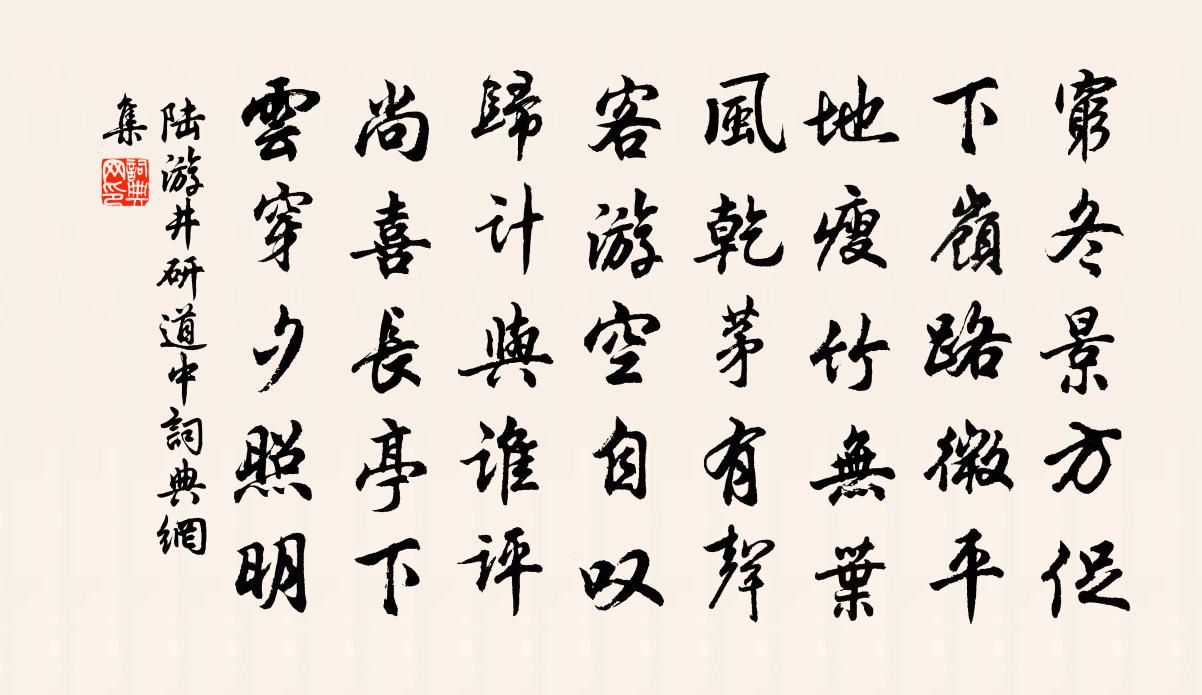 窮冬景方促
下嶺路微平
地瘦竹無葉
風乾茅有聲
客游空自叹
歸计與谁评
尚喜長亭下
雲穿夕照明
陆游井研道中詞典網
集
詞典
网印